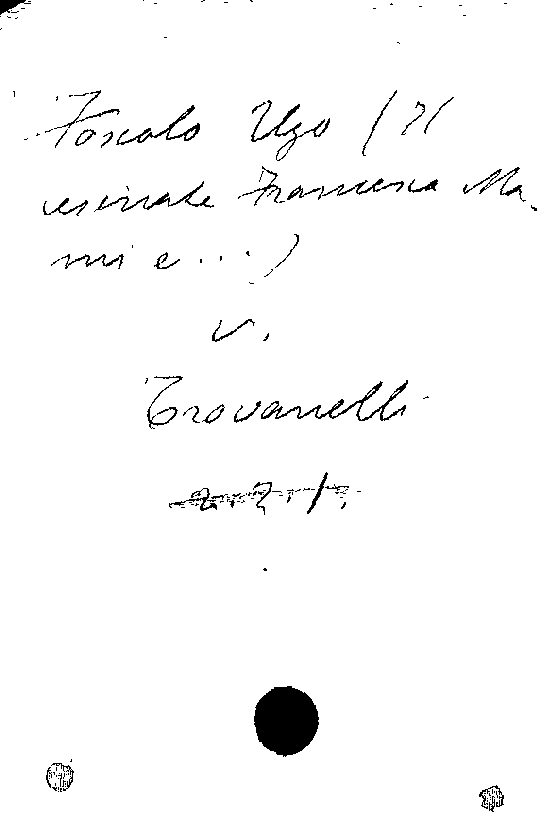 Foscolo Ugo (Il
cesenate Francesco Ma-
mi e...)
v.
Trovanelli